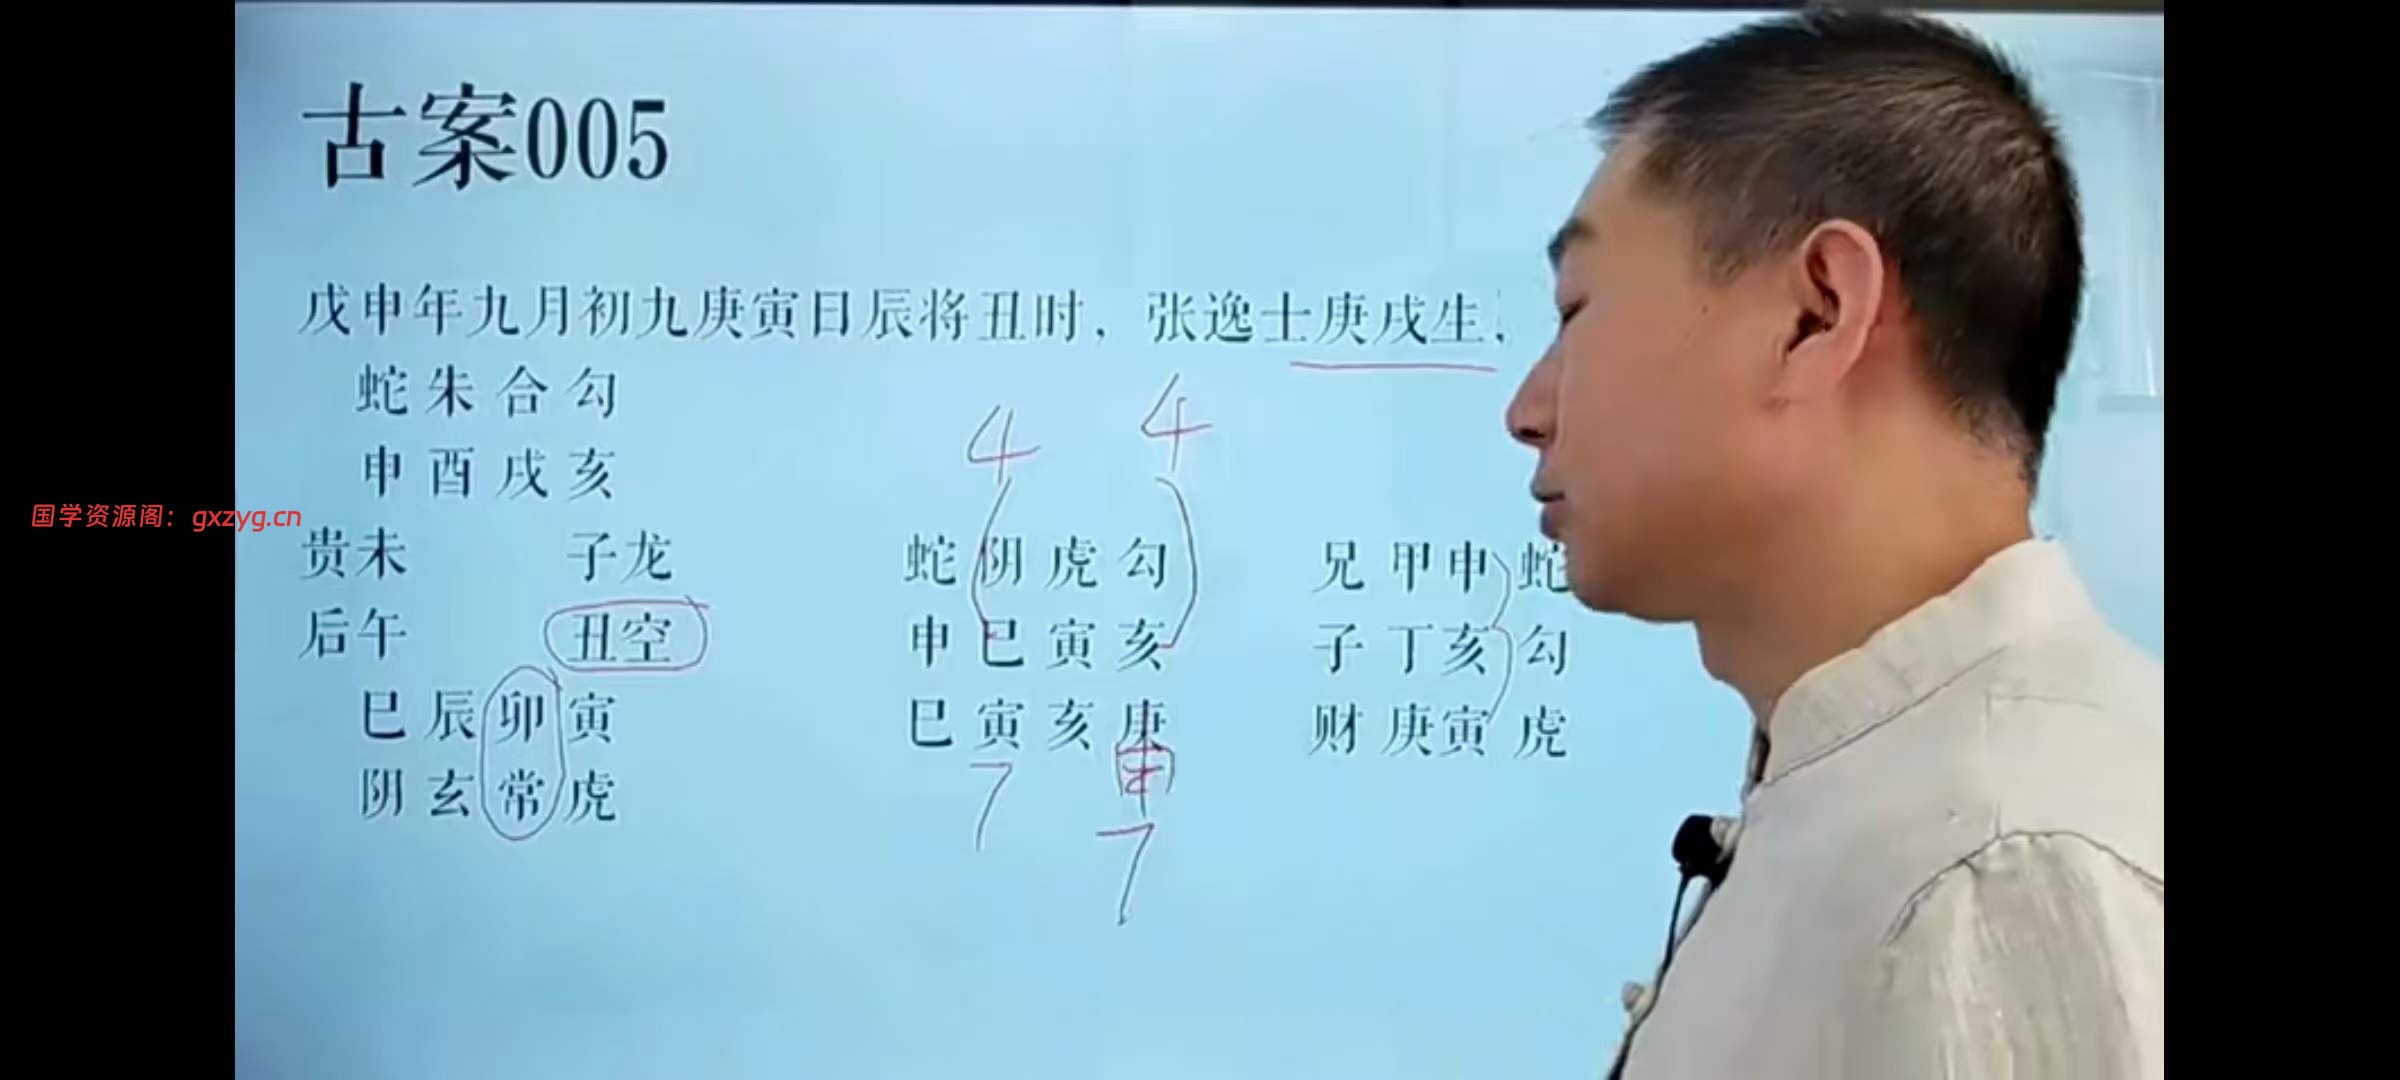 古案005
戊申年九月初九庚寅日辰将丑时，张逸士庚戌生
蛇朱合勾
申酉戌亥
贵未 子龙
后午 丑空
巳辰卯寅
阴玄常虎
4 4
蛇阴虎勾
申巳寅亥
巳寅亥庚
7 7
兄甲申蛇
子丁亥勾
财庚寅虎
国学资源阁：gxzyg.cn